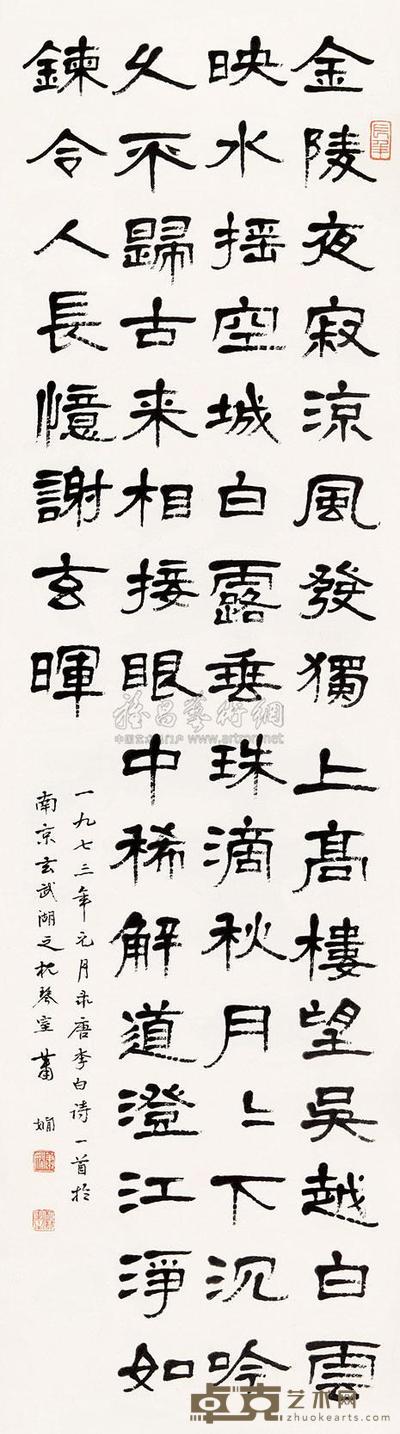 金陵夜寂涼風發獨上髙樓望吳越白雲
映水揺空城白露垂珠滴秋月〻下沉吟
久不歸古来相接眼中稀解道澄江淨如
鍊令人長憶謝玄暉
一九七三年元月录唐李白诗一首於
南京玄武湖之枕琴室 蕭嫻
雅昌藝術網
中国艺术品门户 www.artron.net
卓克艺术网
zhuokearts.com